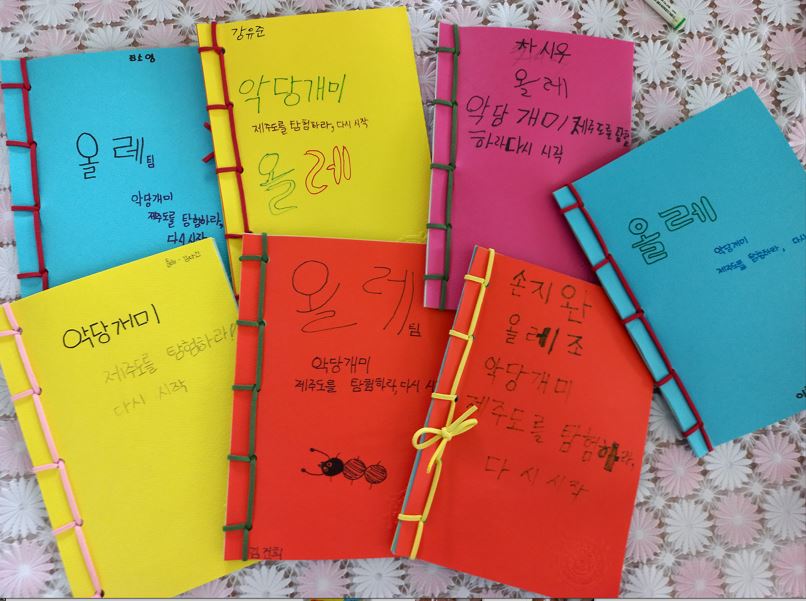 최소영
올레팀
악당개미
제주도를 탐험하라,
다시 시작
강유준
악당개미
제주도를 탐험하라, 다시 시작
올레
차시우
올레
악당 개미 제주도를 탐험
하라 다시 시작
올레
악당개미
제주도를 탐험하라, 다시
악당개미
제주도를 탐험하라!
다시 시작
올레팀
악당개미
제주도를 탐험하라, 다시 시
김건희
손지완
올레조
악당개미
제주도를 탐험하라,
다시 시작